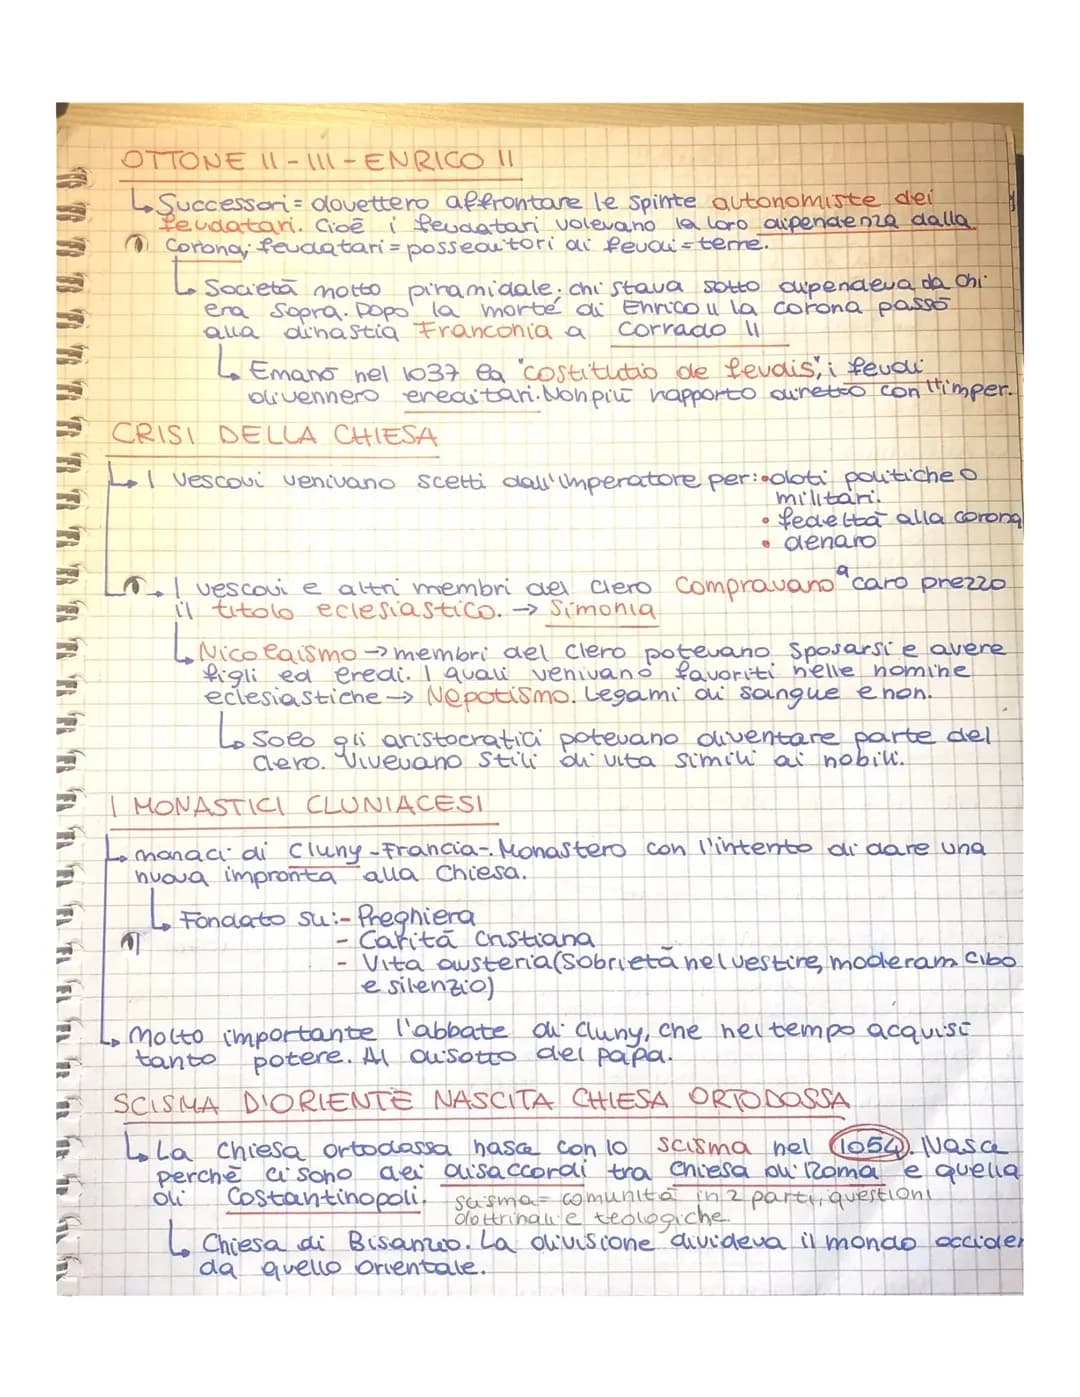 OTTONE II - III - ENRICO II
Successori = dovettero affrontare le spinte autonomiste dei
feudatari. Cioè i feudatari volevano la loro dipendenza dalla
corona; feudatari = posseditori di feudi = terre.
Società molto piramidale. chi stava sotto dipendeva da chi
era sopra. Dopo la morte di Enrico II la corona passò
alla dinastia Franconia a Corrado II
Emanò nel 1037 la "costitutio de feudis", i feudi
divennero ereditari. Non più rapporto diretto con l'imper.
CRISI DELLA CHIESA
I vescovi venivano scelti dall'imperatore per: • doti politiche o
militari.
• fedeltà alla corona
• denaro
I vescovi e altri membri del clero compravano a caro prezzo
il titolo eclesiastico. → Simonia
Nicolaismo → membri del clero potevano sposarsi e avere
figli ed eredi. I quali venivano favoriti nelle nomine
eclesiastiche → Nepotismo. Legami di sangue e non.
Solo gli aristocratici potevano diventare parte del
clero. Vivevano stili di vita simili ai nobili.
I MONASTICI CLUNIACESI
monaci di Cluny - Francia -. Monastero con l'intento di dare una
nuova impronta alla Chiesa.
Fondato su: - Preghiera
- Carità cristiana
- Vita austeria (sobrietà nel vestire, moderam cibo
e silenzio)
Molto importante l'abbate di Cluny, che nel tempo acquisì
tanto potere. Al disotto del papa.
SCISMA D'ORIENTE NASCITA CHIESA ORTODOSSA
La chiesa ortodossa nasce con lo scisma nel 1054. Nasce
perchè ci sono dei disaccordi tra Chiesa di Roma e quella
di Costantinopoli. scisma = comunità in 2 parti, questioni
dottrinali e teologiche.
Chiesa di Bisanzio. La divisione divideva il mondo occiden
da quello orientale.